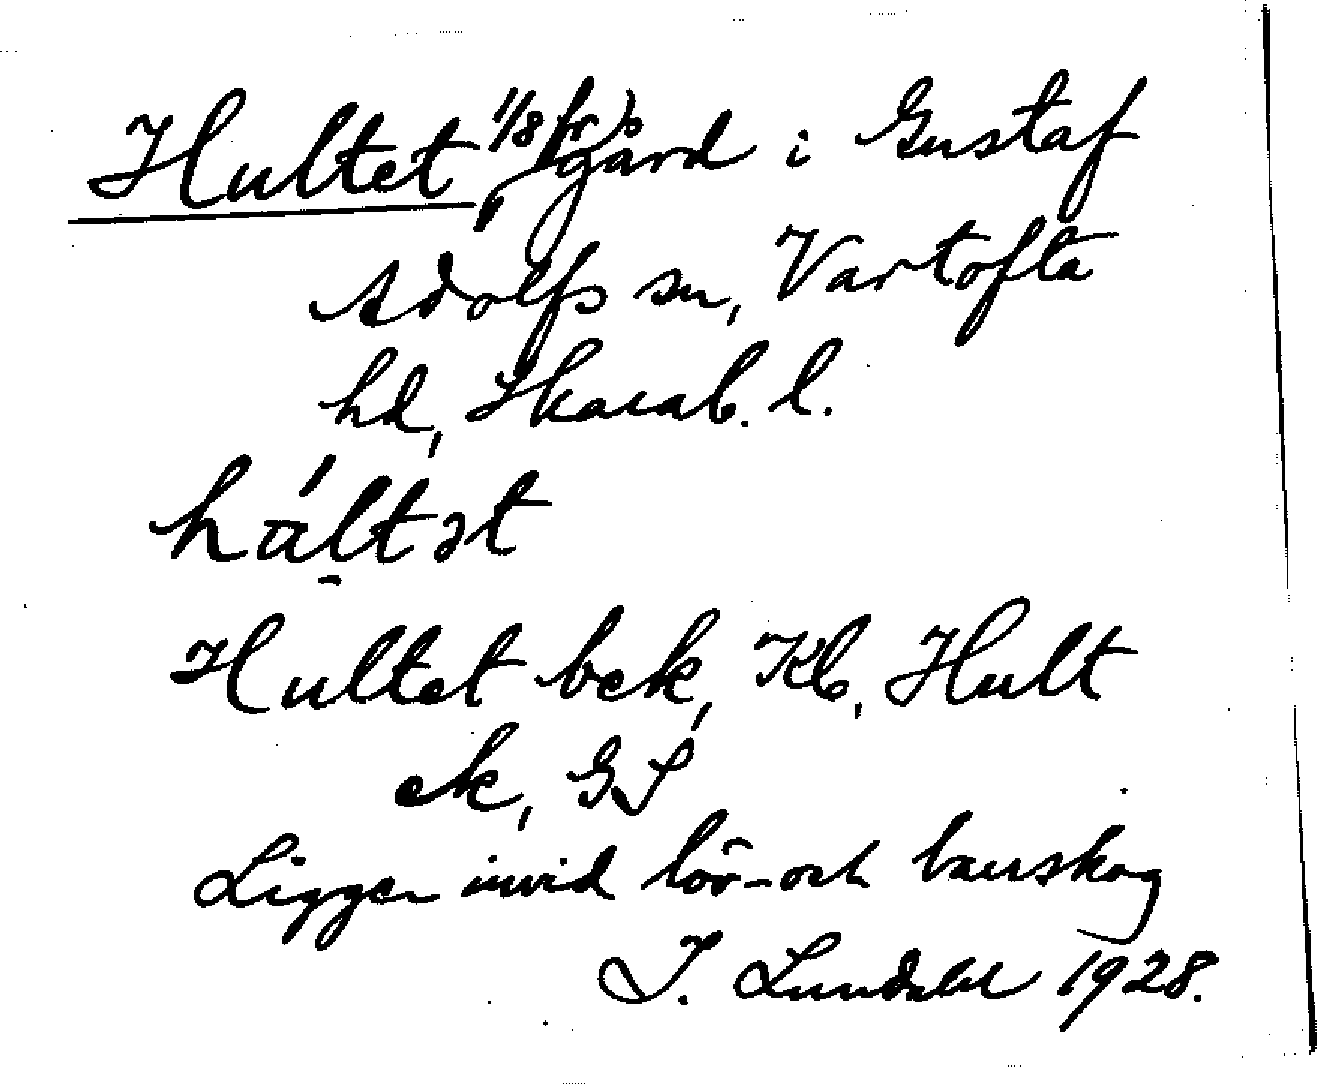 Hultet, 1/8 fr s gård i Gustaf
Adolfs sn, Vartofta
hd, Skarab. l.
háltət
Hultet bek, Kb, Hult
ek, GS
Ligger invid löv- och barrskog
I. Lundahl 1928.